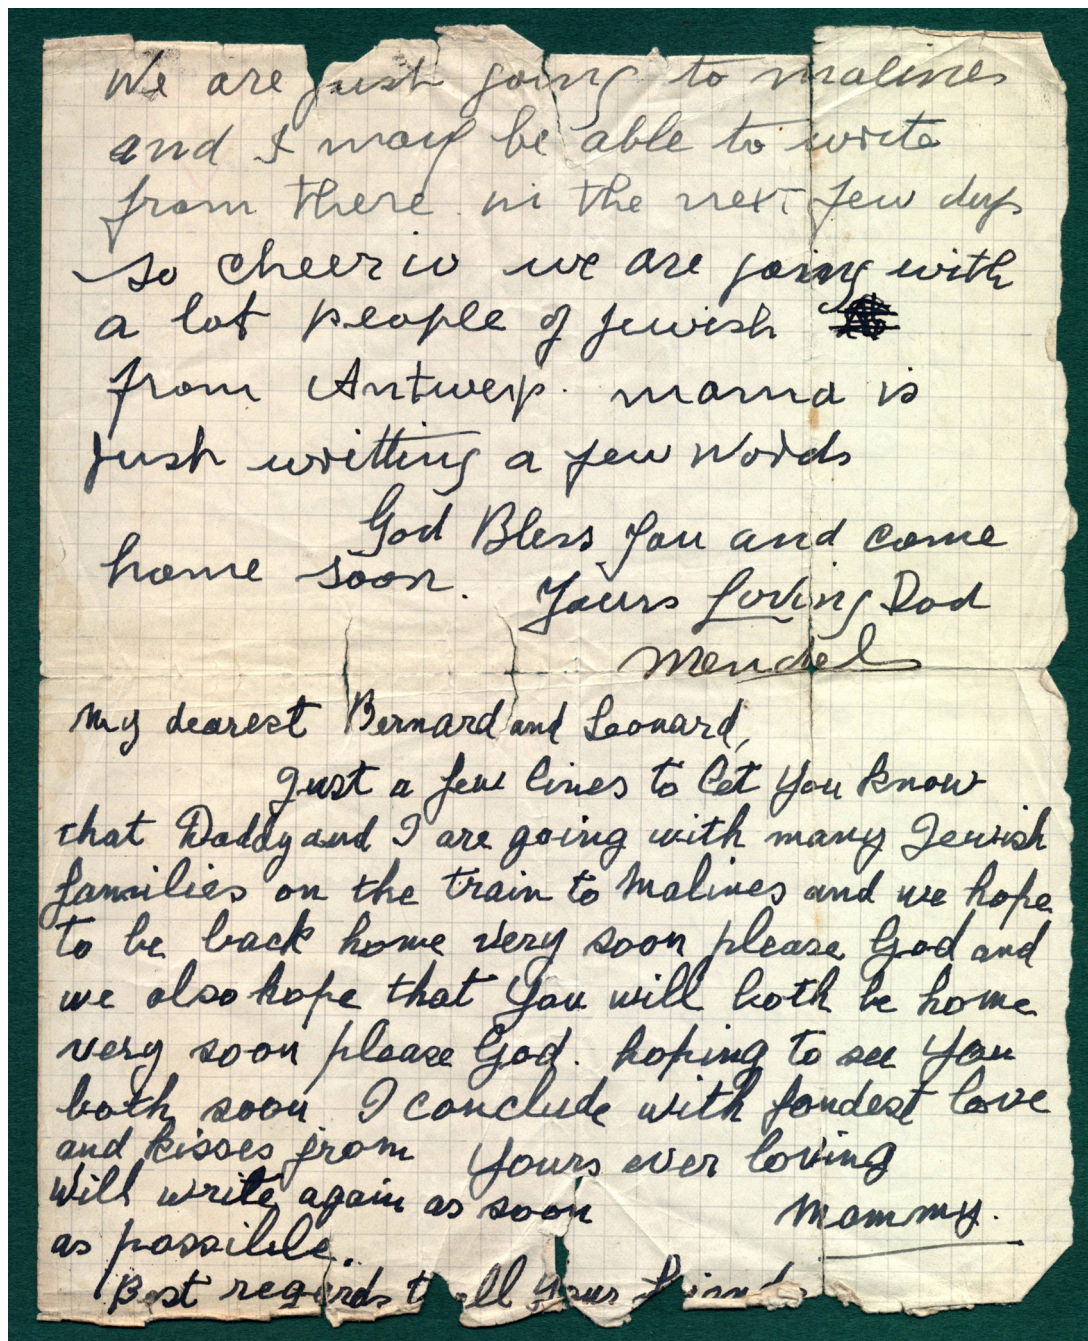 We are just going to malines
and I may be able to write
from there in the next few days
so cheerio we are going with
a lot people of Jewish
from Antwerp. mama is
just writting a few words
God Bless you and come
home soon.
Yours Loving Dad
Mendel
My dearest Bernard and Leonard,
Just a few lines to let you know
that Daddy and I are going with many Jewish
families on the train to Malines and we hope
to be back home very soon please God and
we also hope that you will both be home
very soon please God. hoping to see you
both soon I conclude with fondest love
and kisses from yours ever loving
Mommy.
will write again as soon
as possible.
Best regards t ll your friends